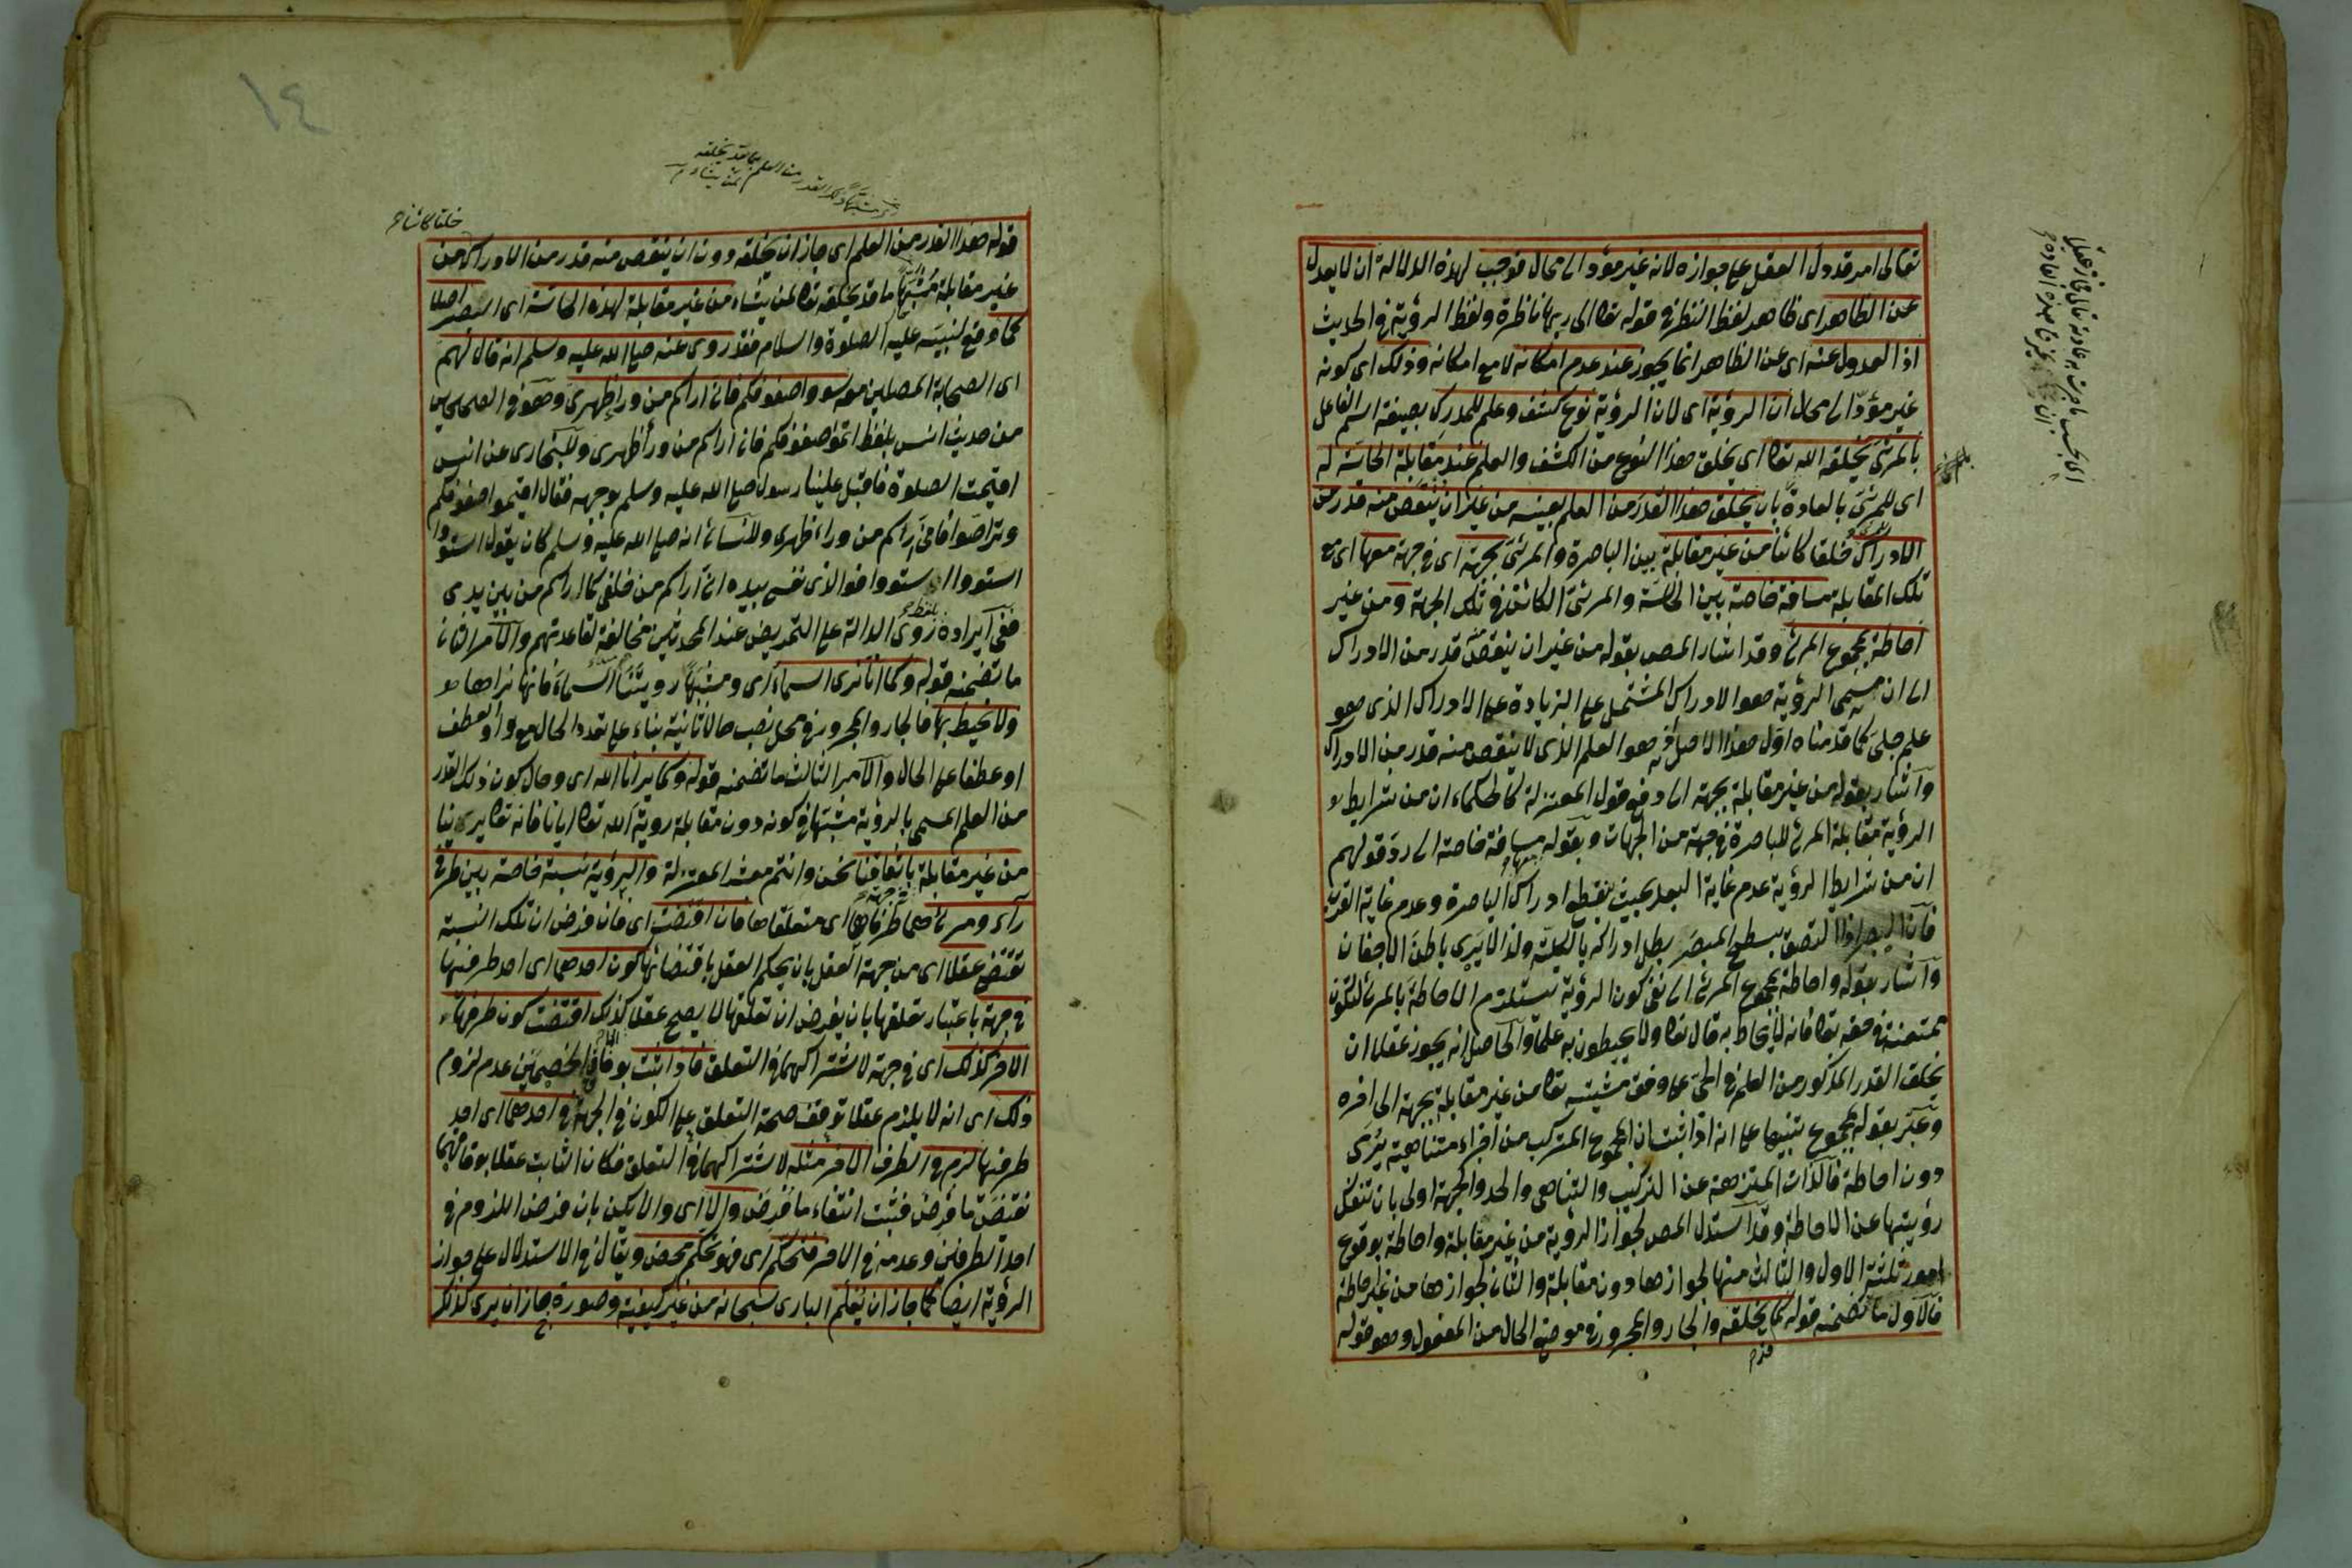 تعالى امر قد دل العقل على جوازه لانه غير مؤد الى محال فوجب لهذه الدلالة ان لا يعدل
عن الظاهر اى ظاهر لفظ النظر فى قوله تعا الى ربها ناظرة ولفظ الرؤية فى الحديث
اذ العدول عنه اى عن الظاهر انما يجوز عند عدم امكانه لا مع امكانه وذلك اى كونه
غير مؤد الى محال ان الرؤية اى لان الرؤية نوع كشف وعلم للمدرك بصيغة اسم الفاعل
بالمرئى يخلقه الله تعا اى يخلق هذا النوع من الكشف والعلم عند مقابلة الحاسة له
اى للمرئى بالعادة بان يخلق هذا القدر من العلم بعينه من غير ان ينقص منه قدر من
الادراك خلقا كائنا من غير مقابلة بين الباصرة والمرئى بجهة اى فى جهة معها اى مع
تلك المقابلة مسافة خاصة بين الحاسة والمرئى الكائن فى تلك الجهة ومن غير
احاطة بمجموع المرئى وقد اشار المص بقوله من غير ان ينقص منه قدر من الادراك
الى ان مسمى الرؤية هو الادراك المشتمل على الزيادة على الادراك الذى هو
علم جلى كما قدمناه اول هذا الاصل هو العلم الذى لا ينقص منه قدر من الادراك
واشار بقوله من غير مقابلة بجهة الى دفع قول المعتزلة كالحكماء ان من شرايط
الرؤية مقابلة المرئى للباصرة فى جهة من الجهات وبقوله مسافة خاصة الى رد قولهم
ان من شرايط الرؤية عدم غاية البعد بحيث ينقطع ادراك الباصرة وعدم غاية القرب
فان البصر اذا التصق بسطح المبصر بطل ادراكه بالكلية ولذا لا يرى باطن الاجفان
واشار بقوله واحاطة بمجموع المرئى الى نفى كون الرؤية تستلزم الاحاطة بالمرئى لتكون
ممتنعة فى حقه تعا فانه لا يحاط به قال تعا ولا يحيطون به علما والحاصل انه يجوز عقلا ان
يخلق القدر المذكور من العلم فى الحى على وفق مشيته تعا من غير مقابلة بجهة الى اخره
وعبر بقوله بمجموع تنبيها على انه اذا ثبت ان المجموع المتركب من اجزاء متناهية يرى
دون احاطة فالذات المنزهة عن التركيب والتناهى والحد والجهة اولى بان تنفك
رؤيتها عن الاحاطة وقد استدل المص لجواز الرؤية من غير مقابلة واحاطة بوقوع
امور ثلثة الاول والثالث منها لجوازها دون مقابلة والثانى لجوازها من غير احاطة
فالاول ما تضمنه قوله كما يخلقه والجار والمجرور فى موضع الحال من المفعول وهو قوله
١٤
خلقا كائنا
قوله هذا القدر من العلم اى جاز ان يخلقه دون ان ينقص منه قدر من الادراك من
غير مقابلة مشبها ما قد يخلقه تعا لمن يشاء من غير مقابلة لهذه الحاسة اى البصر اصلا
كما وقع لنبيه عليه الصلوة والسلام فقد روى عنه صلى الله عليه وسلم انه قال لهم
اى الصحابة المصلين معه سووا صفوفكم فانى اراكم من وراء ظهرى وهو فى الصحاحين
من حديث انس بلفظ اتموا صفوفكم فانى اراكم من وراء ظهرى وللبخارى عن انس
اقيمت الصلوة فاقبل علينا رسول صلى الله عليه وسلم بوجهه فقال اقيموا صفوفكم
وتراصوا فانى اراكم من وراء ظهرى وللنسائى انه صلى الله عليه وسلم كان يقول استووا
استووا استووا فوالذى نفسى بيده انى اراكم من خلفى كما اراكم من بين يدى
ففى ايراده بلفظ روى الدالة على التمريض عند المحدثين مخالفة لقاعدتهم والامر الثانى
ما تضمنه قوله وكما انا نرى السماء اى ومشبها رؤيتنا السماء فانها نراها
ولا نحيط بها فالجار والمجرور فى محل نصب حالا ثانية بناء على تعدد الحال مع واو العطف
او عطفا على الحال والامر الثالث ما تضمنه قوله وكما يرانا الله اى وحال كون ذلك القدر
من العلم المسمى بالرؤية مشبها فى كونه دون مقابلة رؤية الله تعا ايانا فانه تعا يرينا
من غير مقابلة باتفاقنا نحن وانتم معشر المعتزلة والرؤية نسبة خاصة بين طرفى
راء ومرئى هما طرفاها اى متعلقاها فان اقتضت اى فان فرض ان تلك النسبة
تقتضى عقلا اى من جهة العقل بان يحكم العقل باقتضائها كون احدهما اى احد طرفيها
فى جهة باعتبار تعلقها بان يفرض ان تعلقها لا يصح عقلا كذلك اقتضت كون طرفها
الاخر كذلك اى فى جهة لاشتراكهما فى التعلق فاذا ثبت بوفاق الخصمين عدم لزوم
ذلك اى انه لا يلزم عقلا توقف صحة التعلق على الكون فى الجهة فى احدهما اى احد
طرفيها لزم فى الطرف الاخر مثله لاشتراكهما فى التعلق فكان الثابت عقلا بوفاقهما
نقيض ما فرض فثبت انتفاء ما فرض والا اى والا يكن بان فرض اللزوم فى
احد الطرفين وعدمه فى الاخر فتحكم اى فهو تحكم محض ويقال فى الاستدلال على جواز
الرؤية ايضا كما جاز ان يعلم البارى سبحانه من غير كيفية وصورة جاز ان يرى كذلك